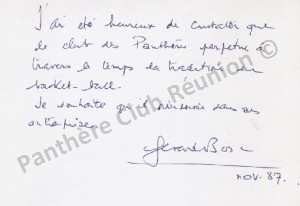 J'ai été heureux de constater que
le club des Panthères perpetue à
travers le temps la tradition du
basket-ball.
Je souhaite qu'il réussisse dans ses
entreprises.
Panthère Club Réunion ©
nov. 87.